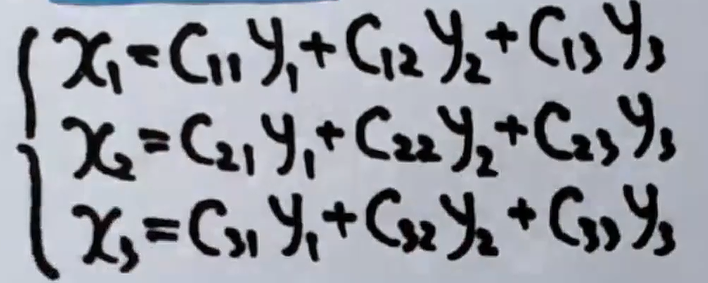 x₁=C₁₁y₁+C₁₂y₂+C₁₃y₃
x₂=C₂₁y₁+C₂₂y₂+C₂₃y₃
x₃=C₃₁y₁+C₃₂y₂+C₃₃y₃